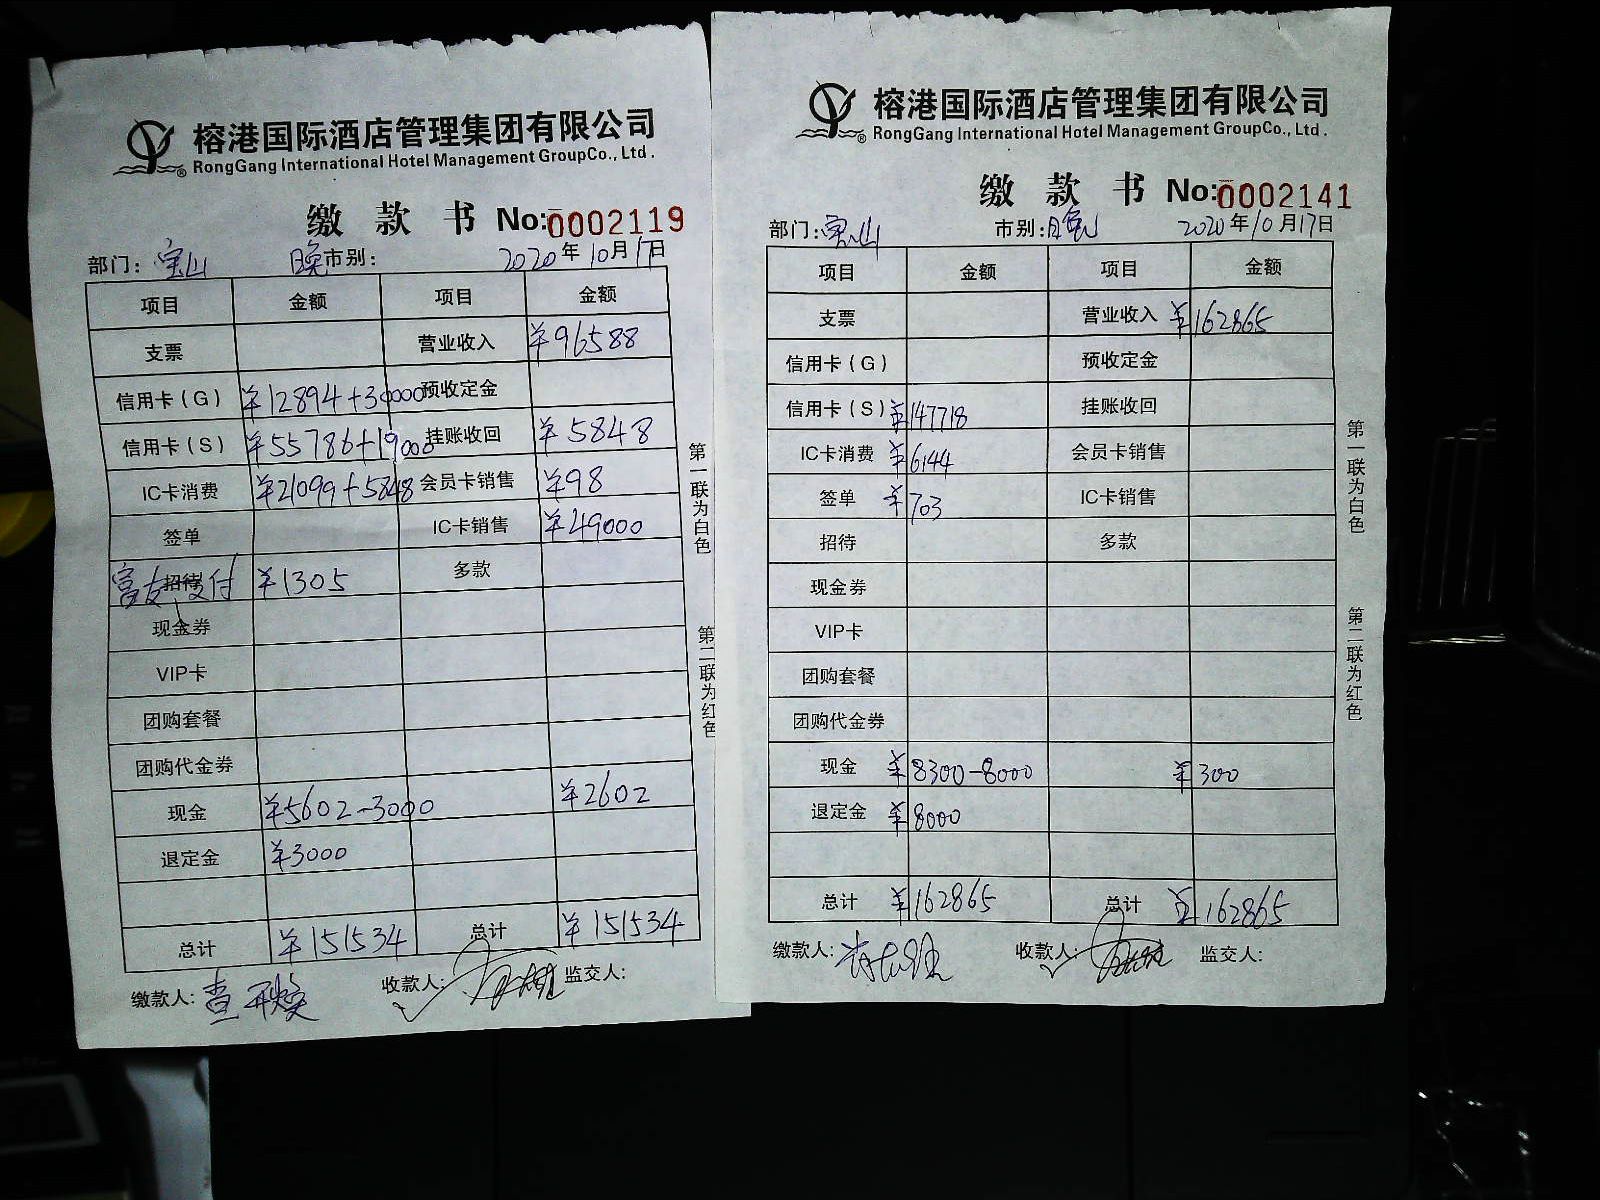 榕港国际酒店管理集团有限公司
RongGang International Hotel Management GroupCo., Ltd.
缴款书 No:0002119
部门: 宝山 晚市别: 2020年10月17日
项目 金额 项目 金额
支票 营业收入 ¥96588
信用卡(G) ¥12894+30000 预收定金
信用卡(S) ¥55786+19000 挂账收回 ¥5848
IC卡消费 ¥21099+5848 会员卡销售 ¥98
签单 IC卡销售 ¥49000
富友支付 招待 ¥1305 多款
现金券
VIP卡
团购套餐
团购代金券
现金 ¥5602-3000 ¥2602
退定金 ¥3000
总计 ¥151534 总计 ¥151534
缴款人: 收款人: 监交人:
第一联为白色
第二联为红色
榕港国际酒店管理集团有限公司
RongGang International Hotel Management GroupCo., Ltd.
缴款书 No:0002141
部门: 宝山 市别: 晚 2020年10月17日
项目 金额 项目 金额
支票 营业收入 ¥162865
信用卡(G) 预收定金
信用卡(S) ¥147718 挂账收回
IC卡消费 ¥6144 会员卡销售
签单 ¥703 IC卡销售
招待 多款
现金券
VIP卡
团购套餐
团购代金券
现金 ¥8300-8000 ¥300
退定金 ¥8000
总计 ¥162865 总计 ¥162865
缴款人: 收款人: 监交人:
第一联为白色
第二联为红色